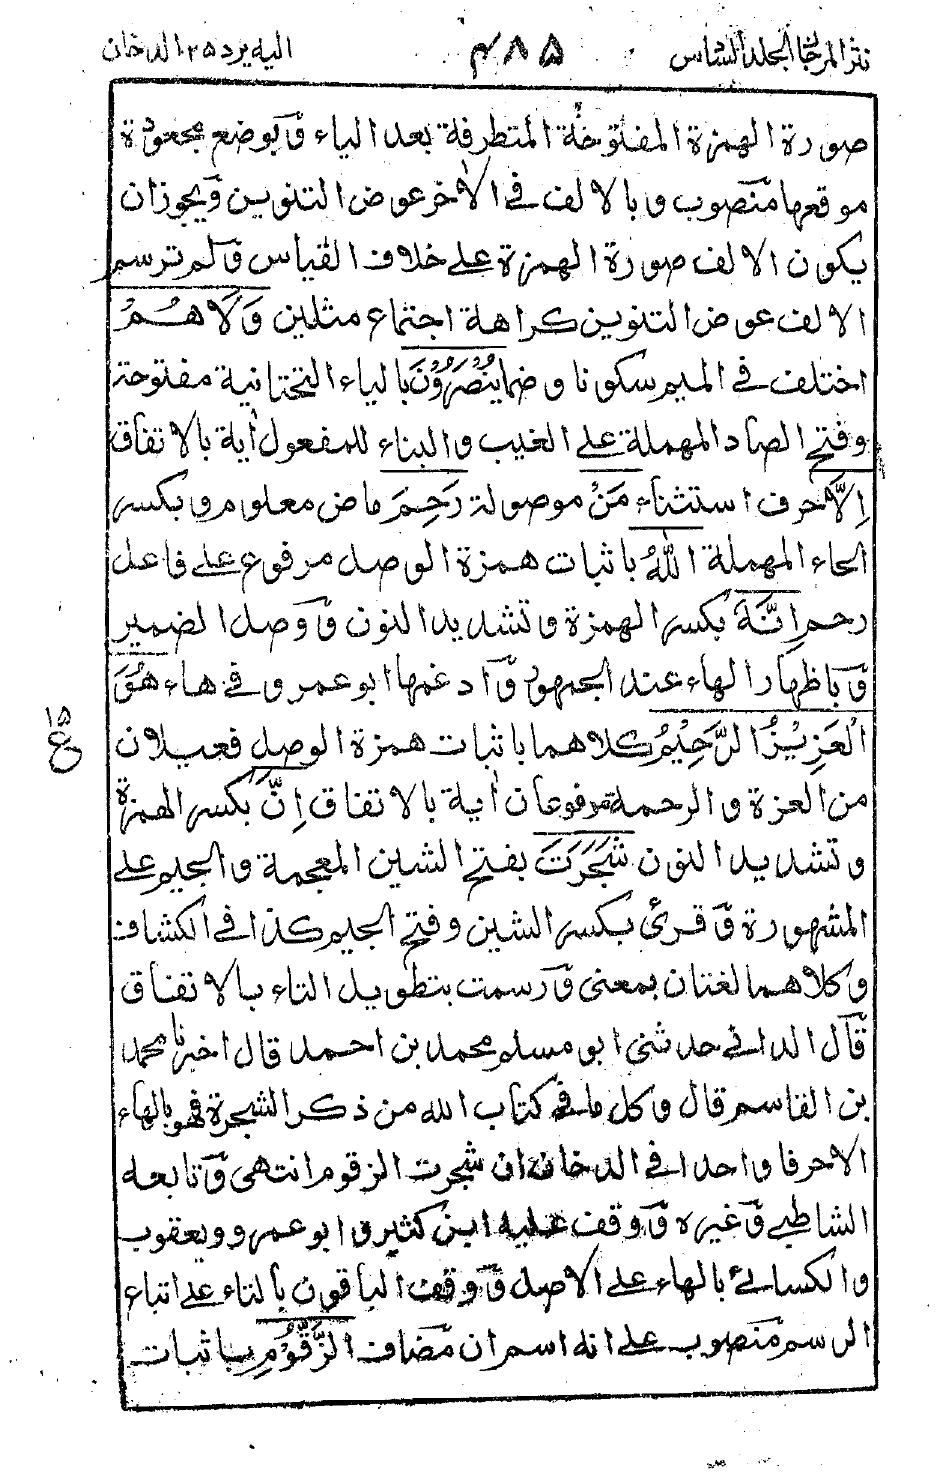 نثر المرجان المجلد السادس
۴۸۵
اليه يرد ۲۵ الدخان
صورة الهمزة المفتوحة المتطرفة بعد الياء وبوضع مجعودة
موقعها منصوب وبالالف في الاخر عوض التنوين ويجوز ان
يكون الالف صورة الهمزة على خلاف القياس ولم ترسم
الالف عوض التنوين كراهة اجتماع مثلين وَلَا هُمْ
اختلف في الميم سكونا وضما يُنْصَرُوْنَ بالياء التحتانية مفتوحة
وفتح الصاد المهملة على الغيب والبناء للمفعول اٰية بالاتفاق
اِلَّا حرف استثناء مَنْ موصولة رَحِمَ ماض معلوم وبكسر
الحاء المهملة اللّٰهُ باثبات همزة الوصل مرفوع على فاعل
رحم اِنَّهٗ بكسر الهمزة وتشديد النون ووصل الضمير
وباظهار الهاء عند الجمهور وادغمها ابو عمرو في هاء هُوَ
الْعَزِيْزُ الرَّحِيْمُ كلاهما باثبات همزة الوصل فعيلان
من العزة والرحمة مرفوعان اٰية بالاتفاق اِنَّ بكسر الهمزة
وتشديد النون شَجَرَتَ بفتح الشين المعجمة والجيم على
المشهورة وقرئ بكسر الشين وفتح الجيم كذا في الكشاف
وكلاهما لغتان بمعنى ورسمت بتطويل التاء بالاتفاق
قال الداني حدثني ابو مسلم محمد بن احمد قال اخبرنا محمد
بن القاسم قال وكل ما في كتاب الله من ذكر الشجرة فهو بالهاء
الا حرفا واحدا في الدخان ان شجرت الزقوم انتهى وتابعه
الشاطبي وغيره ووقف عليه ابن كثير وابو عمرو ويعقوب
والكسائي بالهاء على الاصل ووقف الباقون بالتاء على اتباع
الرسم منصوب على انه اسم ان مضاف الزَّقُّوْمِ باثبات
۱۵
ع